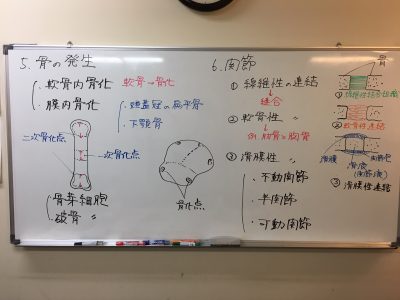 5. 骨の発生
・軟骨内骨化 軟骨→骨化
・膜内骨化
・頭蓋冠の扁平骨
・下顎骨
二次骨化点
一次骨化点
骨化点
・骨芽細胞
・破骨 〃
6. 関節
① 線維性の連結
縫合
② 軟骨性 〃
例. 肋骨と胸骨
③ 滑膜性 〃
・不動関節
・半関節
・可動関節
骨
①
②軟骨性連結
滑膜
関節包
滑液
(関節液)
③滑膜性連結